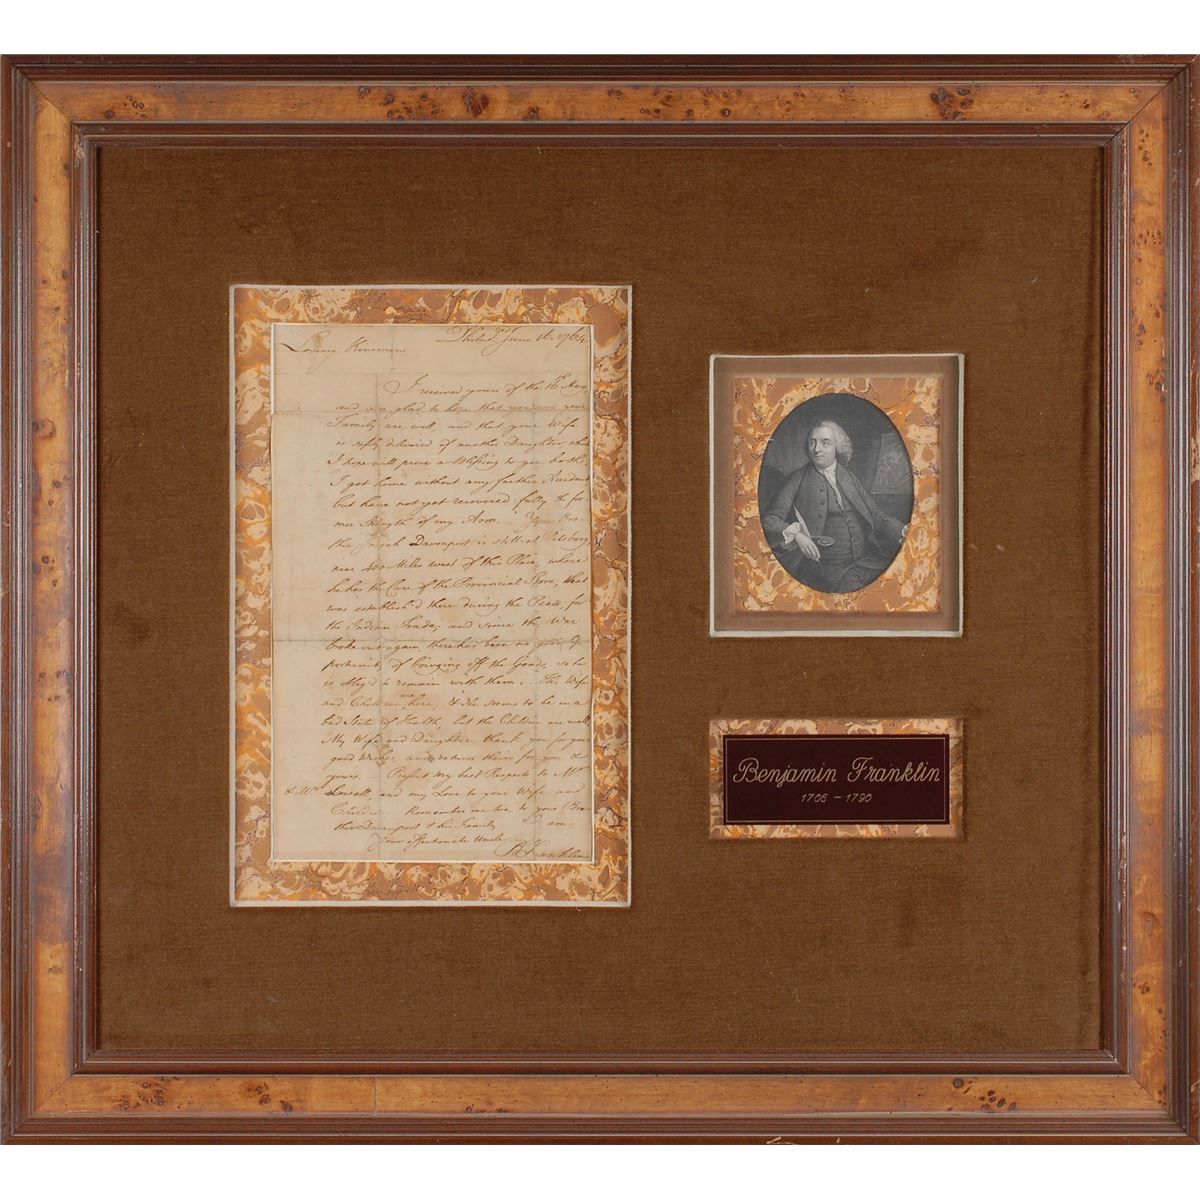 Philad. June 16. 1764
Loving Kinsman
I received yours of the 16th May
and am glad to hear that you and your
Family are well, and that your Wife
is safely delivered of another Daughter who
I hope will prove a Blessing to you both.
I got home without any farther Accident
but have not yet recovered fully the for
mer Strength of my Arm. - Your Bro-
ther Josiah Davenport is still at Pitsburg
near 400 Miles west of this Place, where
he has the Care of the Provincial Store, that
was establish'd there during the Peace, for
the Indian Trade; and since the War
broke out again there has been no good Op
portunity of bringing off the Goods, so he
is oblig'd to remain with them. - His Wife
and Children are here, & she seems to be in a
bad State of Health, but the Children are well
My Wife and Daughter thank you for your
good Wishes, and return theirs for you &
yours. - Present my best Respects to Mr
& Mrs Lowell, and my Love to your Wife and
Children. Remember me too, to your Bro
ther Davenport & his Family. I am,
Your affectionate Uncle
B Franklin
Benjamin Franklin
1706 - 1790